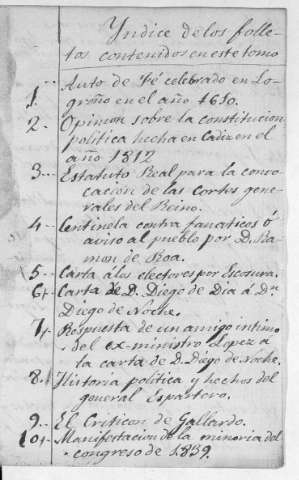 Yndice de los folle-
tos contenidos en este tomo
1. Auto de Fé celebrado en Lo-
groño en el año 1610.
2. Opinion sobre la constitucion
politica hecha en Cadiz en el
año 1812
3. Estatuto Real para la convo-
cacion de las Cortes gene-
rales del Reino.
4. Centinela contra fanaticos ó
aviso al pueblo por D. Ra-
mon de Roa.
5. Carta á los electores por Escosura.
6. Carta de D. Diego de Dia á Dn
Diego de Noche.
7. Respuesta de un amigo intimo
del ex-ministro Lopez á
la carta de D. Diego de Noche.
8. Historia politica y hechos del
general Espartero.
9. El Criticon de Gallardo.
10. Manifestacion de la minoria del
congreso de 1839.